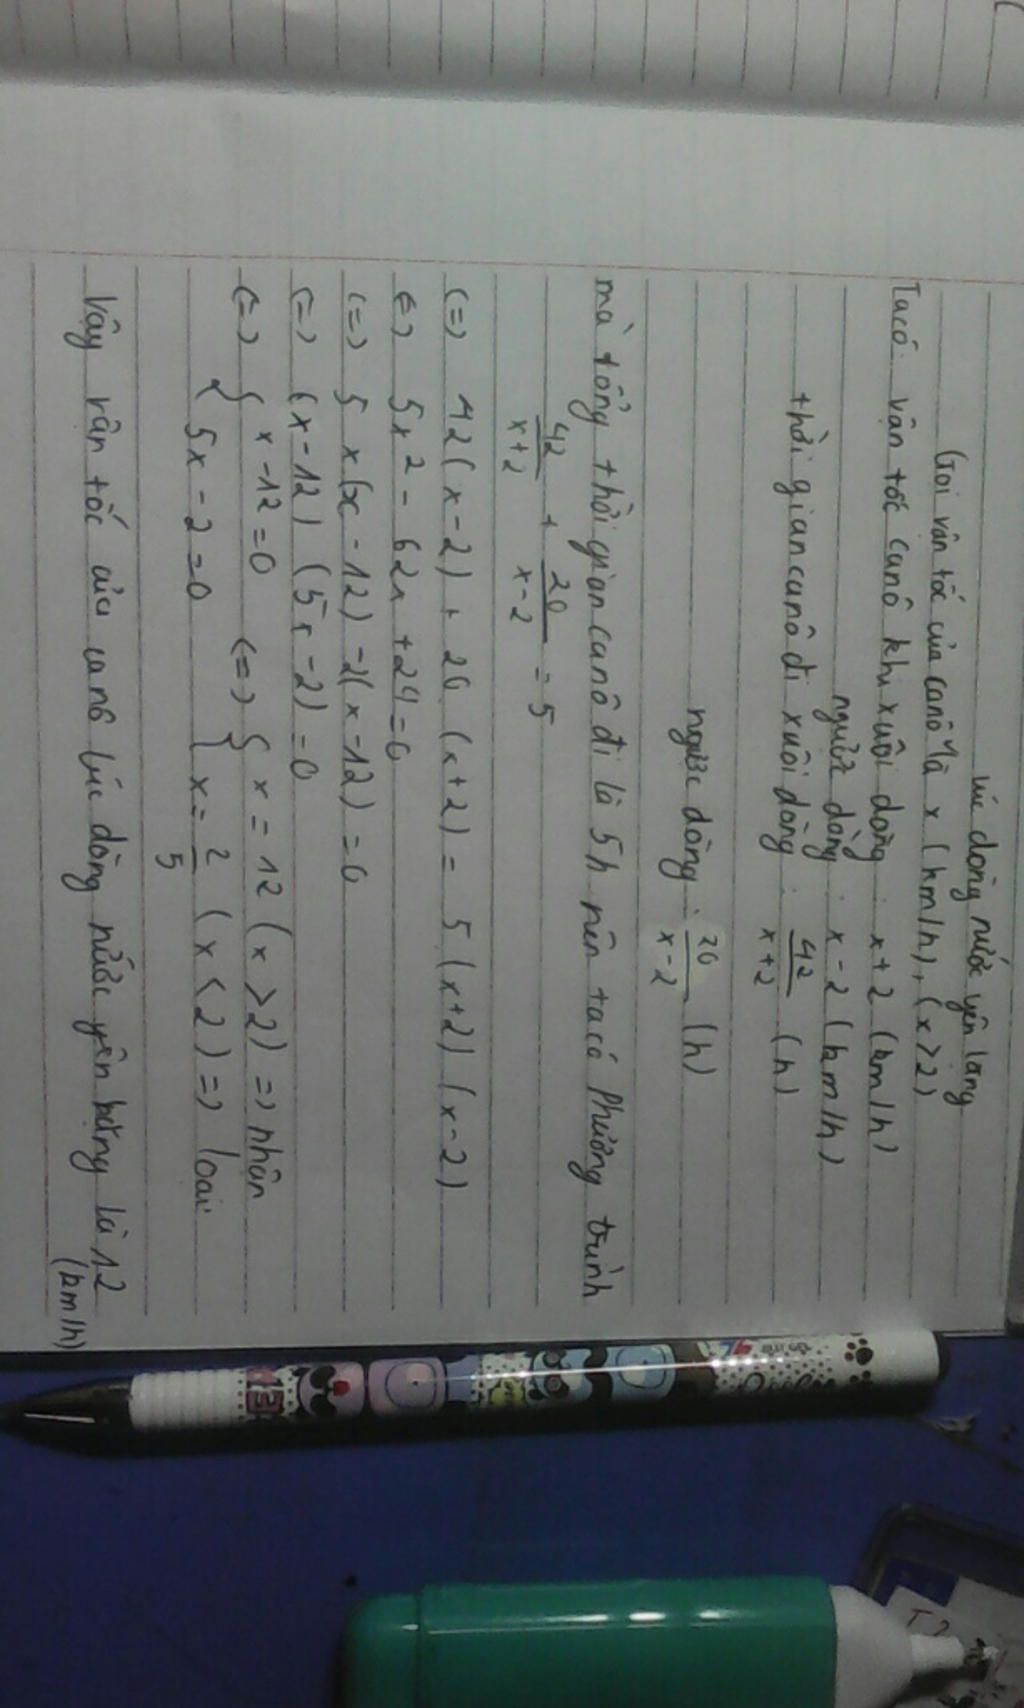 lúc dòng nước yên lặng
Gọi vận tốc của canô là x (km/h), (x>2)
Ta có: vận tốc canô khi xuôi dòng: x+2 (km/h)
ngược dòng: x-2 (km/h)
thời gian canô đi xuôi dòng: 42/(x+2) (h)
ngược dòng: 20/(x-2) (h)
mà tổng thời gian canô đi là 5h nên ta có phương trình
42/(x+2) + 20/(x-2) = 5
(=) 42(x-2) + 20 (x+2) = 5(x+2)(x-2)
(=) 5x² - 62x + 24 = 0
(=) 5x(x-12) -2(x-12) = 0
(=) (x-12) (5x-2) = 0
(=) { x-12=0 (=) { x = 12 (x>2) => nhận
{ 5x-2=0 { x = 2/5 (x<2) => loại
Vậy vận tốc của canô lúc dòng nước yên bằng là 12
(km/h)